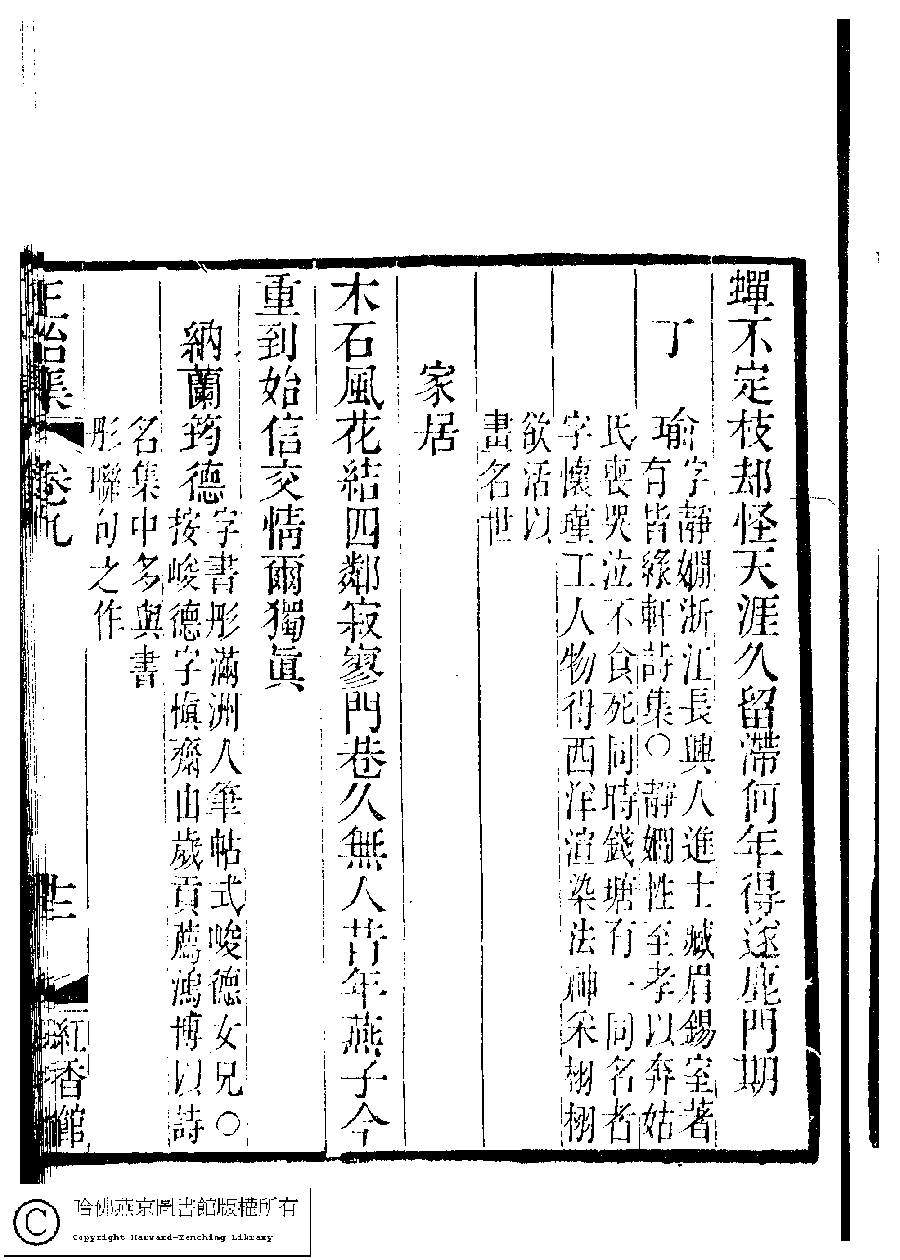 蟬不定枝却怪天涯久留滯何年得遂鹿門期
丁瑜
字靜嫺浙江長興人進士臧眉錫室著
有皆綠軒詩集○靜嫺性至孝以奔姑
氏喪哭泣不食死同時錢塘有一同名者
字懷瑾工人物得西洋渲染法神采栩栩
欲活以
畫名世
家居
木石風花結四鄰寂寥門巷久無人昔年燕子今
重到始信交情爾獨眞
納蘭筠德
字書彤滿洲人筆帖式峻德女兄○
按峻德字愼齋由歲貢薦鴻博以詩
名集中多與書
彤聯句之作
正始集
卷九
十二
紅香館
哈佛燕京圖書館版權所有
Copyright Harvard-Yenching Library